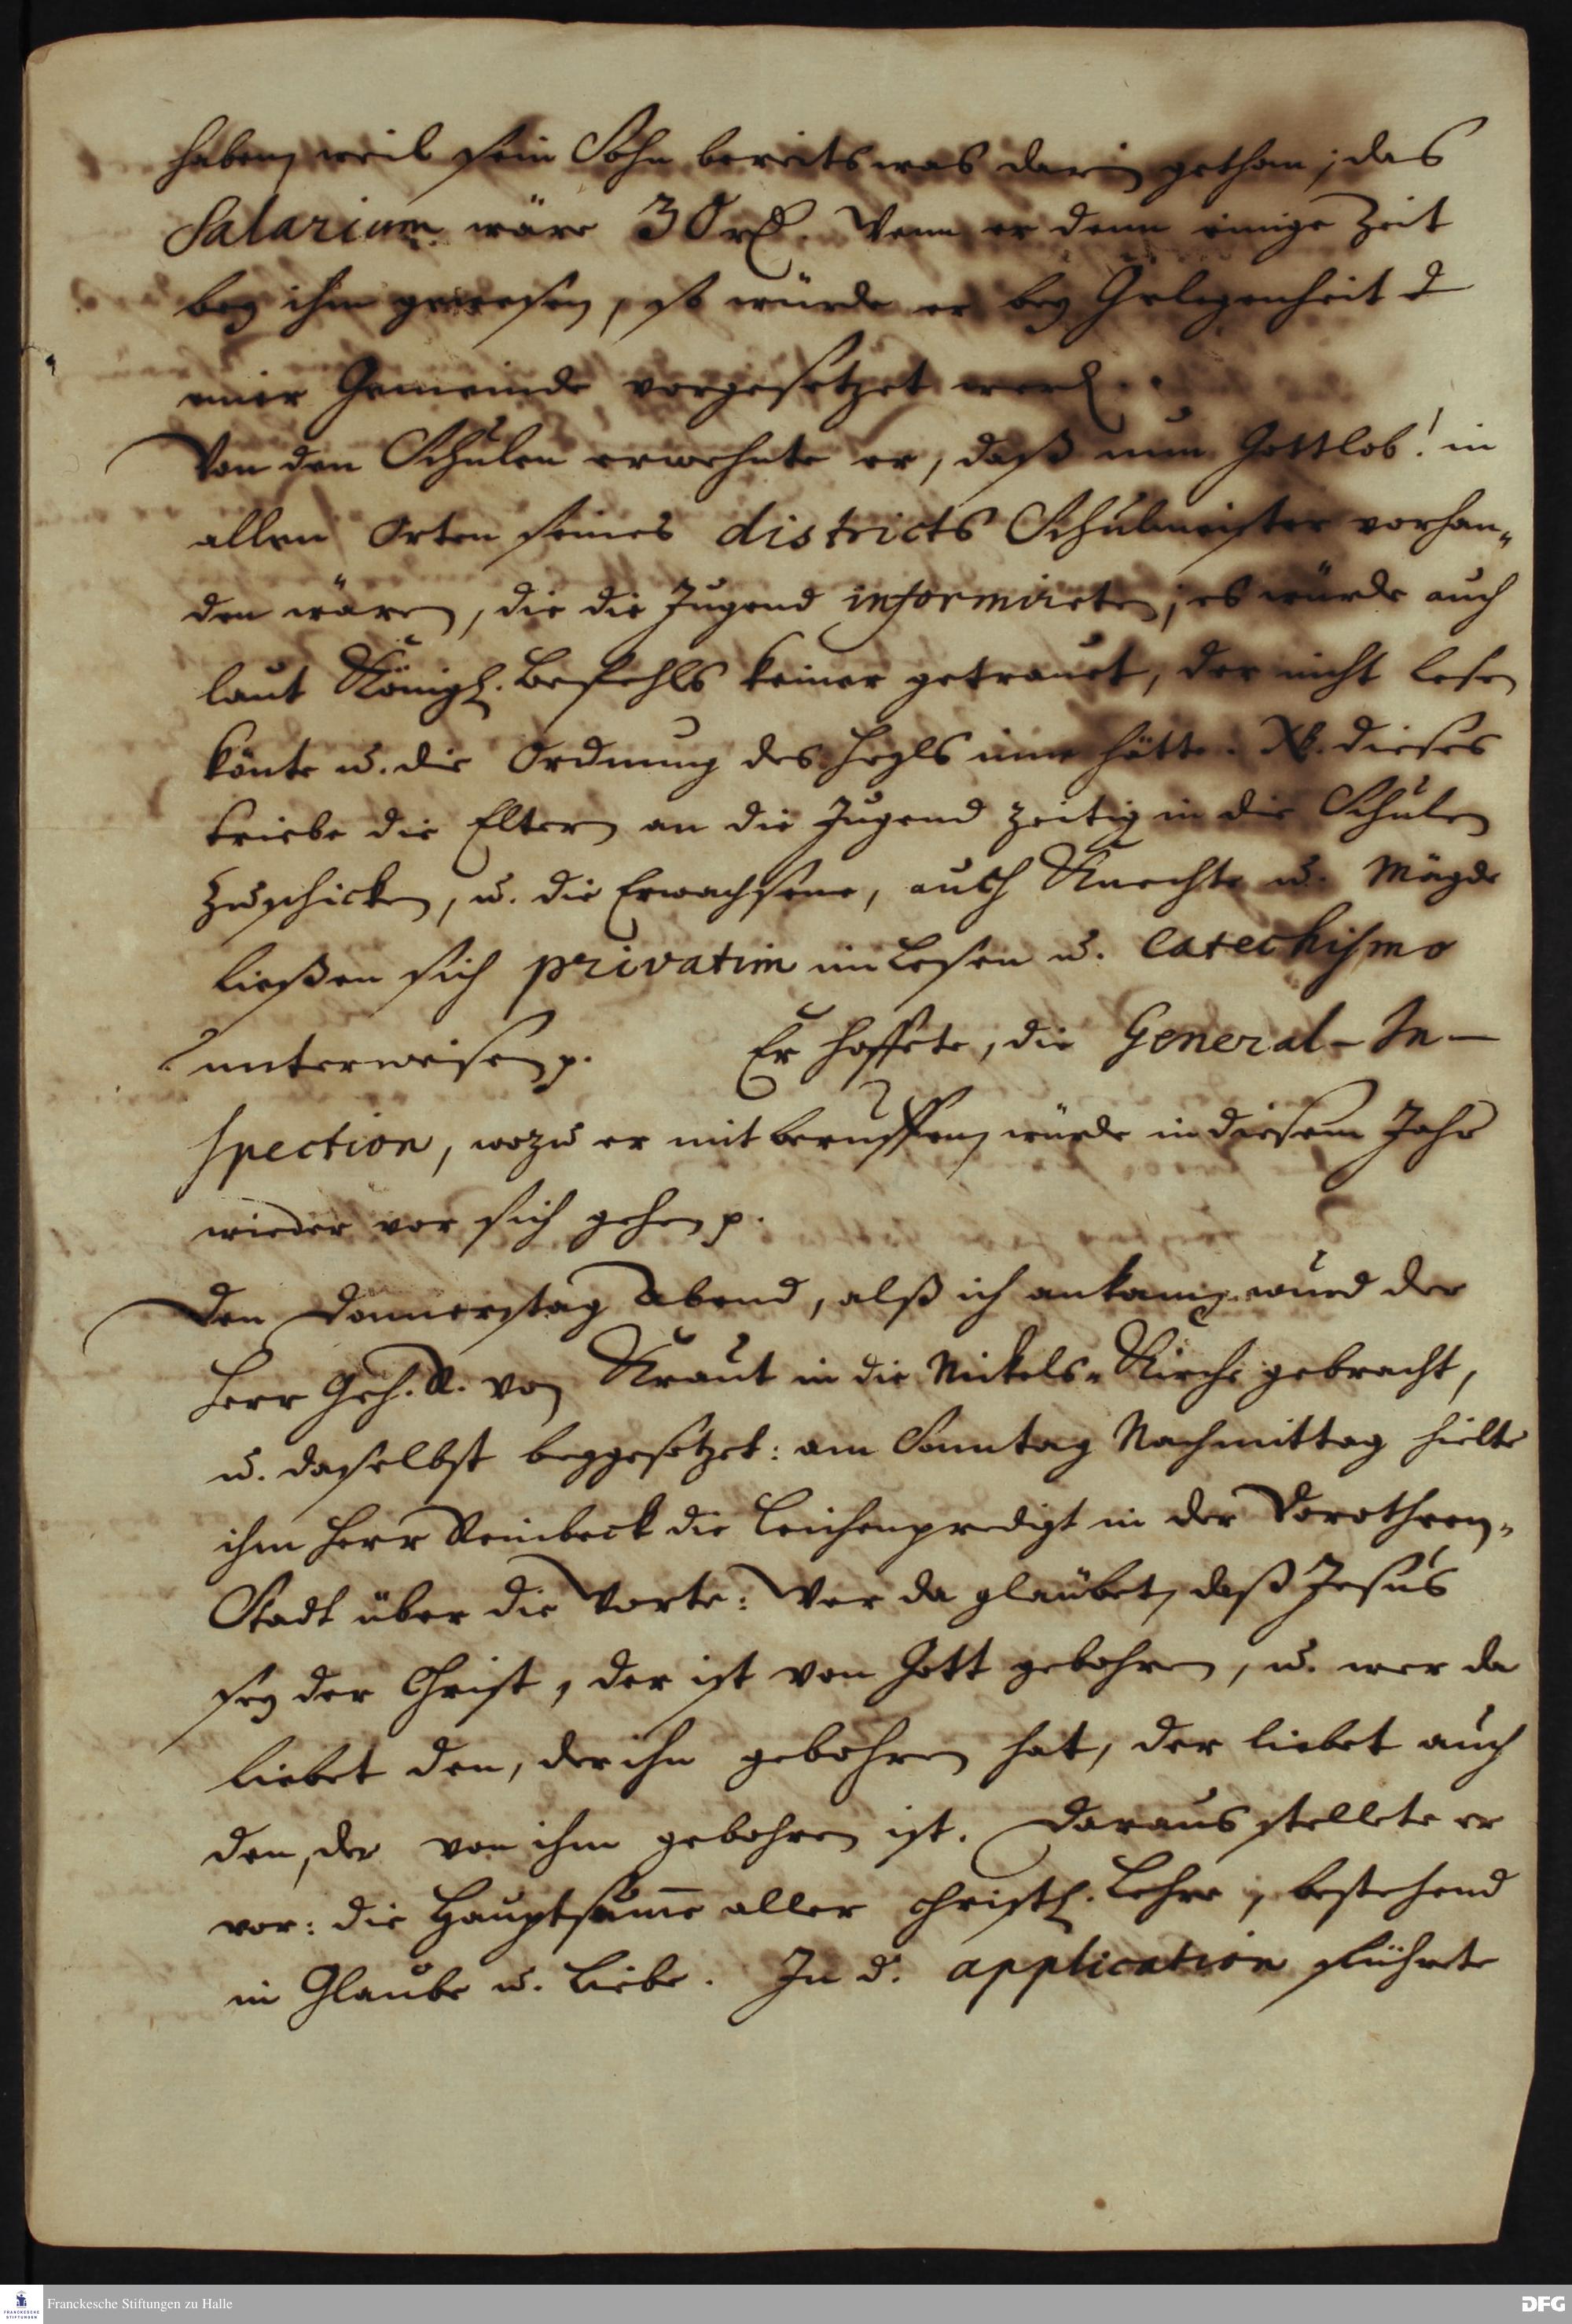 haben, weil sein Sohn bereits was darin gethan; das
Salarium wäre 30 rl. Wenn er denn einige Zeit
bey ihm gewesen, so würde er bey Gelegenheit
einer Gemeinde vorgesetzet werd.
Von den Schulen erwehnte er, daß nun Gottlob! in
allen Orten seines districts Schulmeister vorhan„
den wären, die die Jugend informireten; es würde auch
laut Königl. Befehls keiner getrauet, der nicht lesen
könte u. die Ordnung des Heyls inne hätte. NB. dieses
triebe die Eltern an die Jugend zeitig in die Schulen
zuschicken, u. die Erwachsene, auch Knechte u. Mägde
ließen sich privatim im Lesen u. Catechismo
unterweisen p. Er hoffete, die General-In-
spection, wozu er mit beruffen, würde in diesem Jahr
wieder vor sich gehen p.
Den Donnerstag Abend, alß ich ankam, wurd der
Herr Geh. R. von Kraut in die Nikels-Kirche gebracht,
u. daselbst beygesetzet: am Sonntag Nachmittag hielte
ihm Herr Reinbeck die Leichenpredigt in der Dorotheen-
Stadt über die Worte: Wer da glaubet, daß Jesus
sey der Christ, der ist von Gott gebohren, u. wer da
liebet den, der ihn gebohren hat, der liebet auch
den, der von ihm gebohren ist. Daraus stellete er
vor: die Hauptsumme aller christl. Lehre, bestehend
in Glaube u. Liebe. In d. application führete
Franckesche Stiftungen zu Halle
FRANCKESCHE STIFTUNGEN
DFG